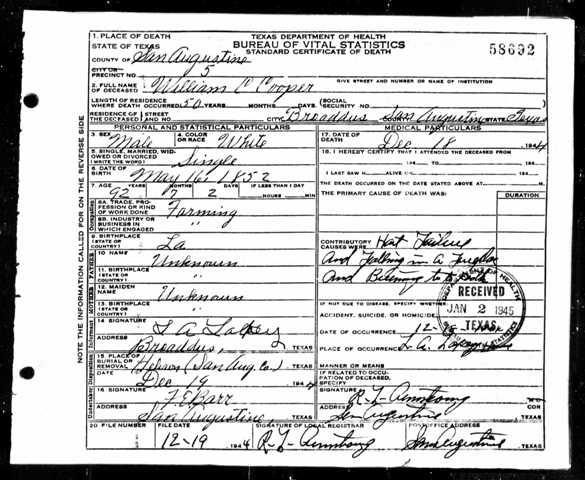 1. PLACE OF DEATH
STATE OF TEXAS
TEXAS DEPARTMENT OF HEALTH
BUREAU OF VITAL STATISTICS
STANDARD CERTIFICATE OF DEATH
58692
COUNTY OF San Augustine
CITY OR
PRECINCT NO. 5
GIVE STREET AND NUMBER OR NAME OF INSTITUTION
2. FULL NAME
OF DECEASED William C Cooper
LENGTH OF RESIDENCE
WHERE DEATH OCCURRED 50 YEARS MONTHS DAYS
(SOCIAL
SECURITY NO.
RESIDENCE OF STREET
THE DECEASED AND NO. CITY Broaddus San Augustine STATE Texas
PERSONAL AND STATISTICAL PARTICULARS
3. SEX Male
4. COLOR
OR RACE White
5. SINGLE, MARRIED, WIDOWED OR DIVORCED
(WRITE THE WORD) Single
6. DATE OF
BIRTH May 16, 1852
7. AGE YEARS MONTHS DAYS IF LESS THAN 1 DAY
92 7 2 HOURS MIN
8A. TRADE, PROFESSION OR KIND
OF WORK DONE Farming
8B. INDUSTRY OR
BUSINESS IN
WHICH ENGAGED "
9. BIRTHPLACE
(STATE OR
COUNTRY) La
10. NAME Unknown
11. BIRTHPLACE
(STATE OR
COUNTRY) "
12. MAIDEN
NAME Unknown
13. BIRTHPLACE
(STATE OR
COUNTRY) "
14. SIGNATURE
ADDRESS Broaddus, TEXAS
15. PLACE OF
BURIAL OR
REMOVAL (San Aug Co.) TEXAS
DATE Dec 19 1944
16. SIGNATURE
ADDRESS San Augustine, TEXAS
MEDICAL PARTICULARS
17. DATE OF
DEATH Dec 18 1944
18. I HEREBY CERTIFY THAT I ATTENDED THE DECEASED FROM
194 TO 194
I LAST SAW H ALIVE ON 194
THE DEATH OCCURRED ON THE DATE STATED ABOVE AT M.
THE PRIMARY CAUSE OF DEATH WAS: DURATION
CONTRIBUTORY
CAUSES WERE:
And Falling in a
And Burning to
IF NOT DUE TO DISEASE, SPECIFY WHETHER
ACCIDENT, SUICIDE, OR HOMICIDE
DATE OF OCCURRENCE 12-18
PLACE OF OCCURRENCE
MANNER OR MEANS
IF RELATED TO OCCUPATION OF DECEASED,
SPECIFY
SIGNATURE
ADDRESS San Augustine TEXAS
DEPARTMENT OF HEALTH
RECEIVED
JAN 2 1945
TEXAS
20. FILE NUMBER FILE DATE SIGNATURE OF LOCAL REGISTRAR POSTOFFICE ADDRESS
12-19 1944 San Augustine TEXAS
NOTE THE INFORMATION CALLED FOR ON THE REVERSE SIDE
Occupation
FATHER
MOTHER
Informant